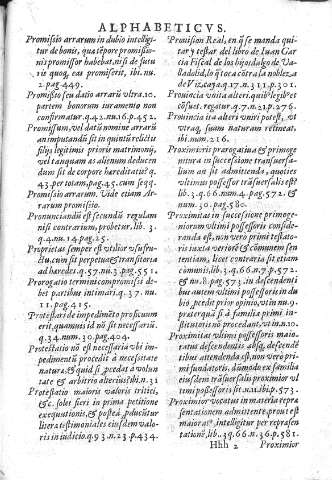 ALPHABETICVS.
Promißio arrarum in dubio intelligi-
tur de bonis, quæ tẽpore promißio-
nis promissor habebat, nisi de futu
ris quoq, eas promiserit, ibi. nu.
2. pag. 449.
Promißio seu datio arrarũ vltra. 10.
partem bonorum iuramento non
confirmatur. q. 42. nu. 16. p. 452.
Promissum, vel datũ nomine arrarũ
an imputandũ sit in quintũ relictũ
filijs legitimis prioris matrimonij,
vel tanquam as alienum deducen
dum sit de corpore hæreditatis? q.
43. per totam, pag. 45. cum seqq.
Promißio arrarum. Vide etiam Ar-
rarum promißio.
Pronunciandũ est secundũ regulam
nisi contrarium, probetur, lib. 3.
q. 4. nu. 14. pag. 25.
Proprietas semper est vtilior vsufru-
ctu, cum sit perpetua & transitoria
ad hæredes. q. 57. nu. 3. pag. 551.
Prorogatio termini compromißi de-
bet partibus intimari. q. 37. nu.
11. pag. 415.
Protestari de impedimẽto prosicuum
erit, quamuis id nõ sit necessariũ.
q. 34. num. 30. pag. 404.
Protestatio nõ est necessaria vbi im-
pedimentũ procedit à necessitate
naturæ, & quid si pẽdat à volun
tate & arbitrio alterius ibi. n. 31
Protestatio maioris valoris tritici,
& c. solet fieri in prima petitione
executionis, & postea pducũtur
literæ testimoniales eiusdem valo-
ris in iudicio. q. 93. n. 23. p. 434.
Prouision Real, en q̃ se manda qui-
tar y testar del libro de Iuan Gar
cia Fiscal de los hijosdalgo de Va-
lladolid, lo q̃ toca cõtra la nobleza
de Vizcaya. q. 17. n. 31. p. 301.
Prouincia vnita alteri, quib' legib' et
cẽsuat. regatur. q. 7. n. 21. p. 276.
Prouincia ita alteri vniri potest, vt
vtraq; suam naturam retineat.
ibi. num. 216.
Proximitatis prærogatiua & primoge
nitura in successione transuersa-
lium an sit admittenda, quoties
vltimus possessor trãsuersalis est?
lib. 3. q. 66. num. 4. pag. 572. &
num. 30. pag. 580.
Proximitas in successione primoge-
niorum vltimi possessoris conside-
randa est, non vero primi testato-
ris iuxta veriorẽ & cõmunem sen
tentiam, licet contraria sit etiam
cõmunis, lib. 3. q. 66. n. 7. p. 572.
& nu. 9. pag. 573. in descendenti
bus autem vltimi possessoris in du
bio, p̃cedit prior opinio, vt in nu. 9.
præterquã si à familia primi in-
stitutoris nõ procedant, vt in. n. 10.
Proximitas vltimi possessoris maio-
ratus descendentis absq; descẽdẽ
tibus attendenda est, non verò pri
mi fundatoris, dũmodo ex familia
eiusdem trãsuersalis proximior vl
timi possessoris sit n. 11. ibi. p. 573.
Proximior vocatus in materia repræ
sentationem admittente, prout est
maiorat', intelligitur per repræsen
tationẽ, lib. 3. q. 66. n. 36. p. 581.
Hhh 2 Proximior